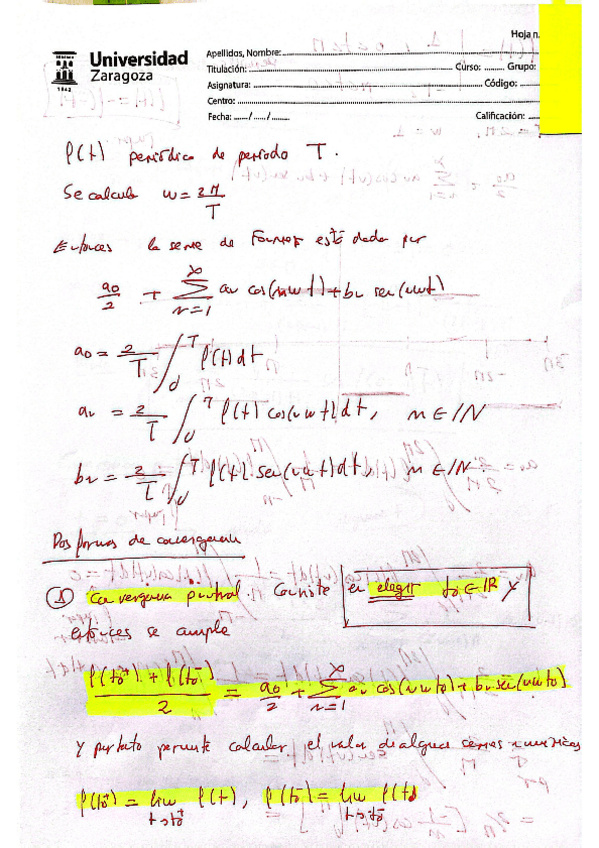 Hoja n.
Universidad
Zaragoza
1542
Apellidos, Nombre:
Titulación: Curso: Grupo:
Asignatura: Código:
Centro:
Fecha: ..../..../.... Calificación:
f(t) periódica de periodo T.
Se calcula w = 2π/T
Entonces la serie de Fourier está dada por
a₀/2 + ∑_{n=1}^{∞} aₙ cos(nwt) + bₙ sen(nwt)
a₀ = 2/T ∫₀ᵀ f(t) dt
aₙ = 2/T ∫₀ᵀ f(t) cos(nwt) dt, n ∈ ℕ
bₙ = 2/T ∫₀ᵀ f(t) sen(nwt) dt, n ∈ ℕ
Dos formas de convergencia
① Convergencia puntual. Consiste en elegir t₀ ∈ ℝ y
entonces se cumple
(f(t₀⁺) + f(t₀⁻))/2 = a₀/2 + ∑_{n=1}^{∞} aₙ cos(nwt₀) + bₙ sen(nwt₀)
Y por tanto permite calcular el valor de algunas series numéricas
f(t₀⁺) = lim_{t→t₀⁺} f(t), f(t₀⁻) = lim_{t→t₀⁻} f(t)